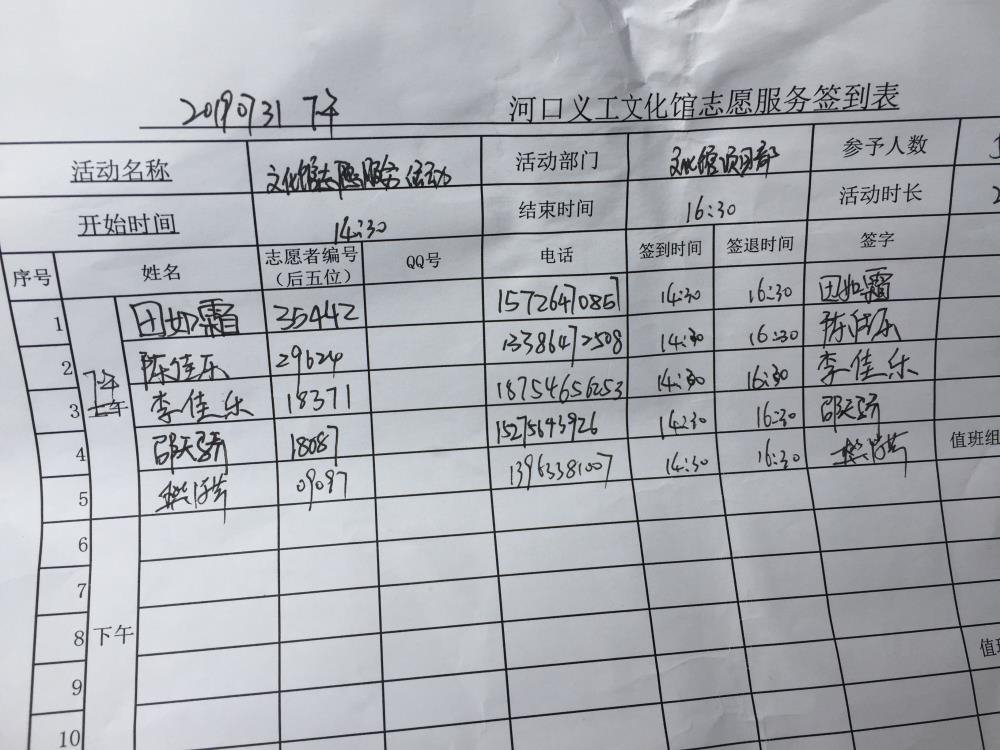 20190731 下午 河口义工文化馆志愿服务签到表
活动名称 文化馆志愿服务活动 活动部门 文化馆项目部 参予人数
开始时间 14:30 结束时间 16:30 活动时长
序号 姓名 志愿者编号（后五位） QQ号 电话 签到时间 签退时间 签字
1 田如霜 35442 15726470857 14:30 16:30 田如霜
2 陈佳乐 29624 13386472508 14:30 16:30 陈佳乐
下午
上午
3 李佳乐 18371 18754656253 14:30 16:30 李佳乐
4 邵天骄 18087 15275643926 14:30 16:30 邵天骄 值班组
5 09097 13963381007 14:30 16:30
6
7
8 下午
9
10